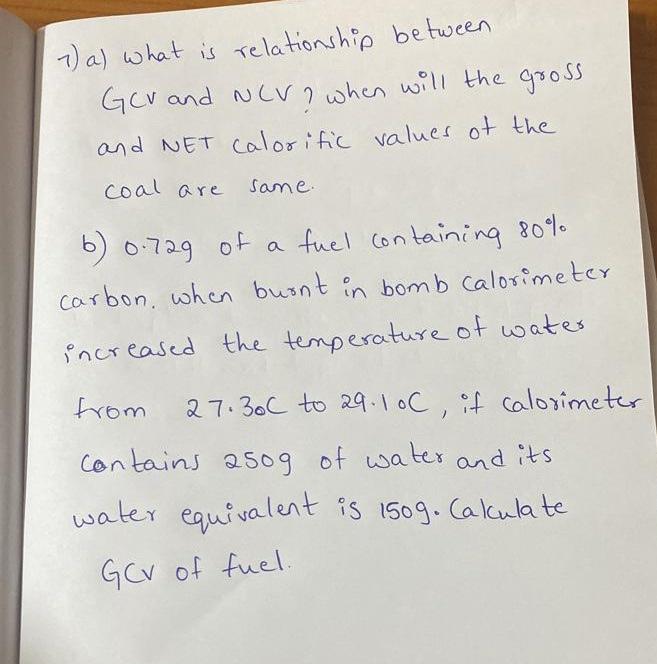 7) a) what is relationship between
GCV and NCV ? when will the gross
and NET calorific values of the
coal are same.
b) 0.72g of a fuel containing 80%
carbon, when burnt in bomb calorimeter
increased the temperature of water
from 27.30C to 29.10C, if calorimeter
contains 250g of water and its
water equivalent is 150g. Calculate
GCV of fuel.